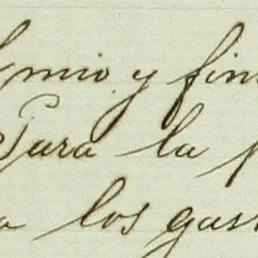 mio y fin
Para la p
a los gast